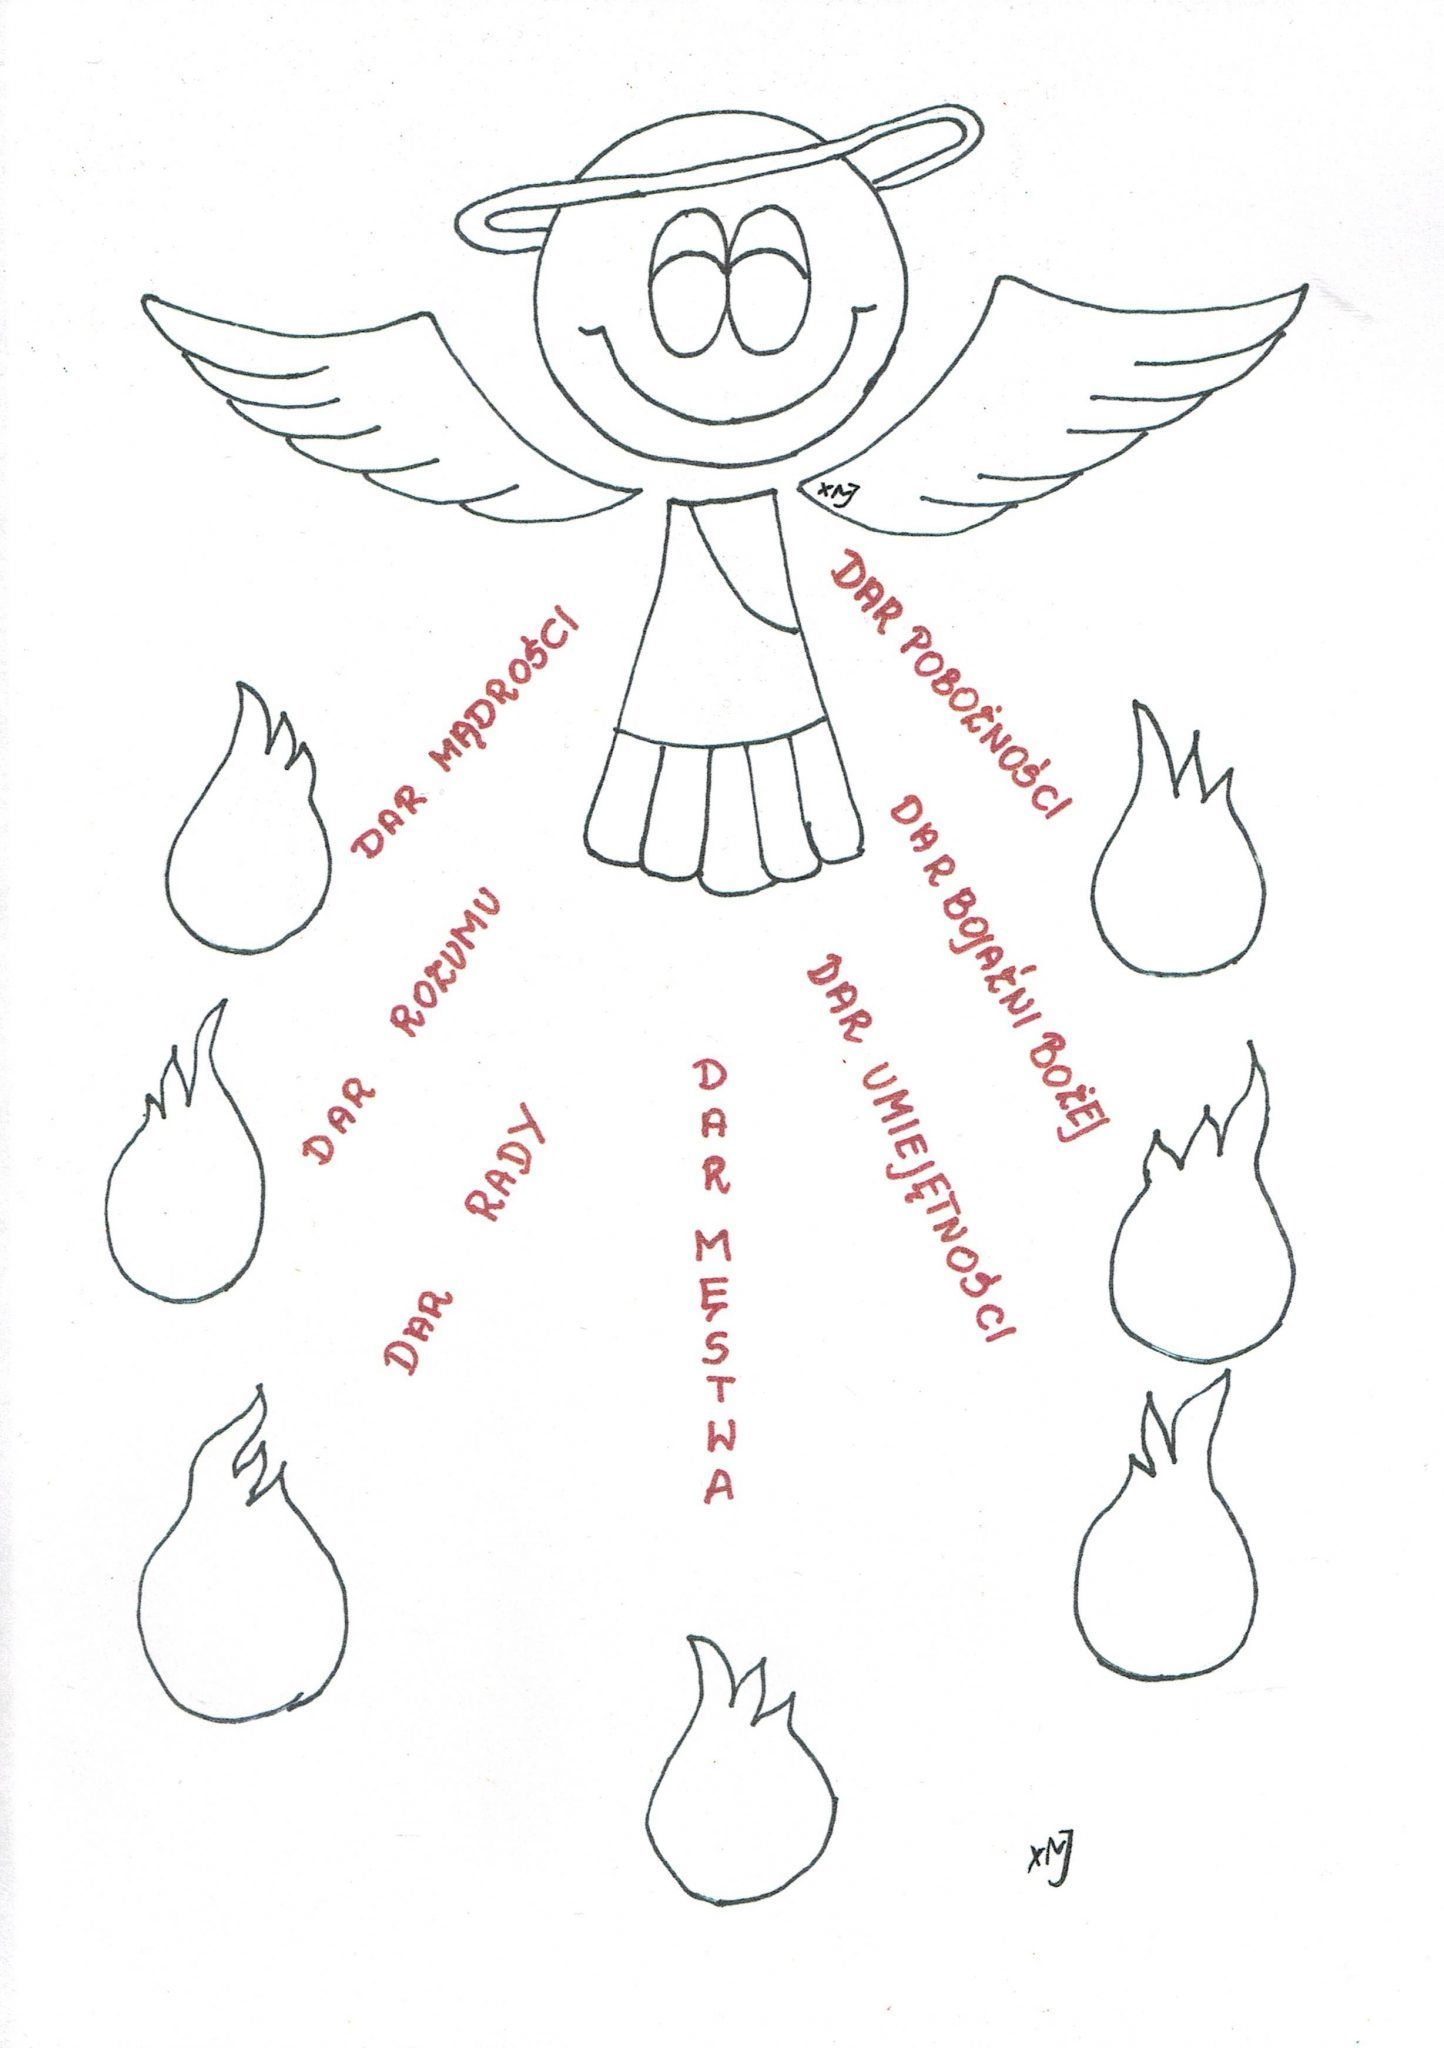 DAR MĄDROŚCI
DAR ROZUMU
DAR RADY
DAR MĘSTWA
DAR UMIEJĘTNOŚCI
DAR BOJAŹNI BOŻEJ
DAR POBOŻNOŚCI